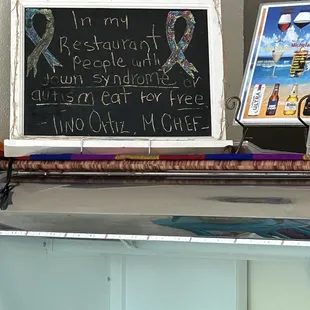 In my
Restaurant
People with
down syndrome or
autism eat for free
- Tino Ortiz, M CHEF -
Michelob
ULTRA